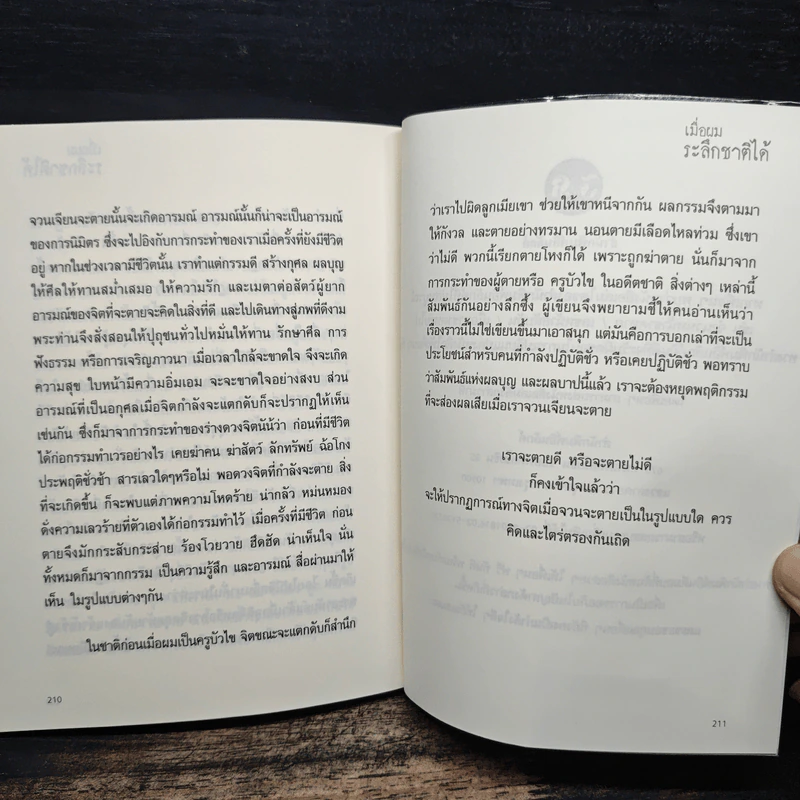 จวนเจียนจะตายนั้นจะเกิดอารมณ์ อารมณ์นั้นก็น่าจะเป็นอารมณ์
ของการนิมิตร ซึ่งจะไปอิงกับการกระทำของเราเมื่อครั้งที่ยังมีชีวิต
อยู่ หากในช่วงเวลามีชีวิตนั้น เราทำแต่กรรมดี สร้างกุศล ผลบุญ
ให้ศีลให้ทานสม่ำเสมอ ให้ความรัก และเมตาต่อสัตว์ผู้ยาก
อารมณ์ของจิตที่จะตายจะคิดในสิ่งที่ดี และไปเดินทางสู่ภพที่ดีงาม
พระท่านจึงสั่งสอนให้ปุถุชนทั่วไปหมั่นให้ทาน รักษาศีล การ
ฟังธรรม หรือการเจริญภาวนา เมื่อเวลาใกล้จะขาดใจ จึงจะเกิด
ความสุข ใบหน้ามีความอิ่มเอม จะจะขาดใจอย่างสงบ ส่วน
อารมณ์ที่เป็นอกุศลเมื่อจิตกำลังจะแตกดับก็จะปรากฏให้เห็น
เช่นกัน ซึ่งก็มาจากการกระทำของร่างดวงจิตนันัว่า ก่อนที่มีชีวิต
ได้ก่อกรรมทำเวรอย่างไร เคยฆ่าคน ฆ่าสัตว์ ลักทรัพย์ ฉ้อโกง
ประพฤติชั่วช้า สารเลวใดๆหรือไม่ พอดวงจิตที่กำลังจะตาย สิ่ง
ที่จะเกิดขึ้น ก็จะพบแต่ภาพความโหดร้าย น่ากลัว หม่นหมอง
ดั่งความเลวร้ายที่ตัวเองได้ก่อกรรมทำไว้ เมื่อครั้งที่มีชีวิต ก่อน
ตายจึงมักกระสับกระส่าย ร้องโวยวาย ฮึดฮัด น่าเห็นใจ นั่น
ทั้งหมดก็มาจากกรรม เป็นความรู้สึก และอารมณ์ สื่อผ่านมาให้
เห็น ในรูปแบบต่างๆกัน
ในชาติก่อนเมื่อผมเป็นครูบัวไข จิตขณะจะแตกดับก็สำนึก
210
เมื่อผม
ระลึกชาติได้
ว่าเราไปผิดลูกเมียเขา ช่วยให้เขาหนีจากกัน ผลกรรมจึงตามมา
ให้กังวล และตายอย่างทรมาน นอนตายมีเลือดไหลท่วม ซึ่งเขา
ว่าไม่ดี พวกนี้เรียกตายโหงก็ได้ เพราะถูกฆ่าตาย นั่นก็มาจาก
การกระทำของผู้ตายหรือ ครูบัวไข ในอดีตชาติ สิ่งต่างๆ เหล่านี้
สัมพันธ์กันอย่างลึกซึ้ง ผู้เขียนจึงพยายามชี้ให้คนอ่านเห็นว่า
เรื่องราวนี้ไม่ใช่เขียนขึ้นมาเอาสนุก แต่มันคือการบอกเล่าที่จะเป็น
ประโยชน์สำหรับคนที่กำลังปฏิบัติชั่ว หรือเคยปฏิบัติชั่ว พอทราบ
ว่าสัมพันธ์แห่งผลบุญ และผลบาปนี้แล้ว เราจะต้องหยุดพฤติกรรม
ที่จะส่งผลเสียเมื่อเราจวนเจียนจะตาย
เราจะตายดี หรือจะตายไม่ดี
ก็คงเข้าใจแล้วว่า
จะให้ปรากฏการณ์ทางจิตเมื่อจวนจะตายเป็นในรูปแบบใด ควร
คิดและไตร่ตรองกันเถิด
211